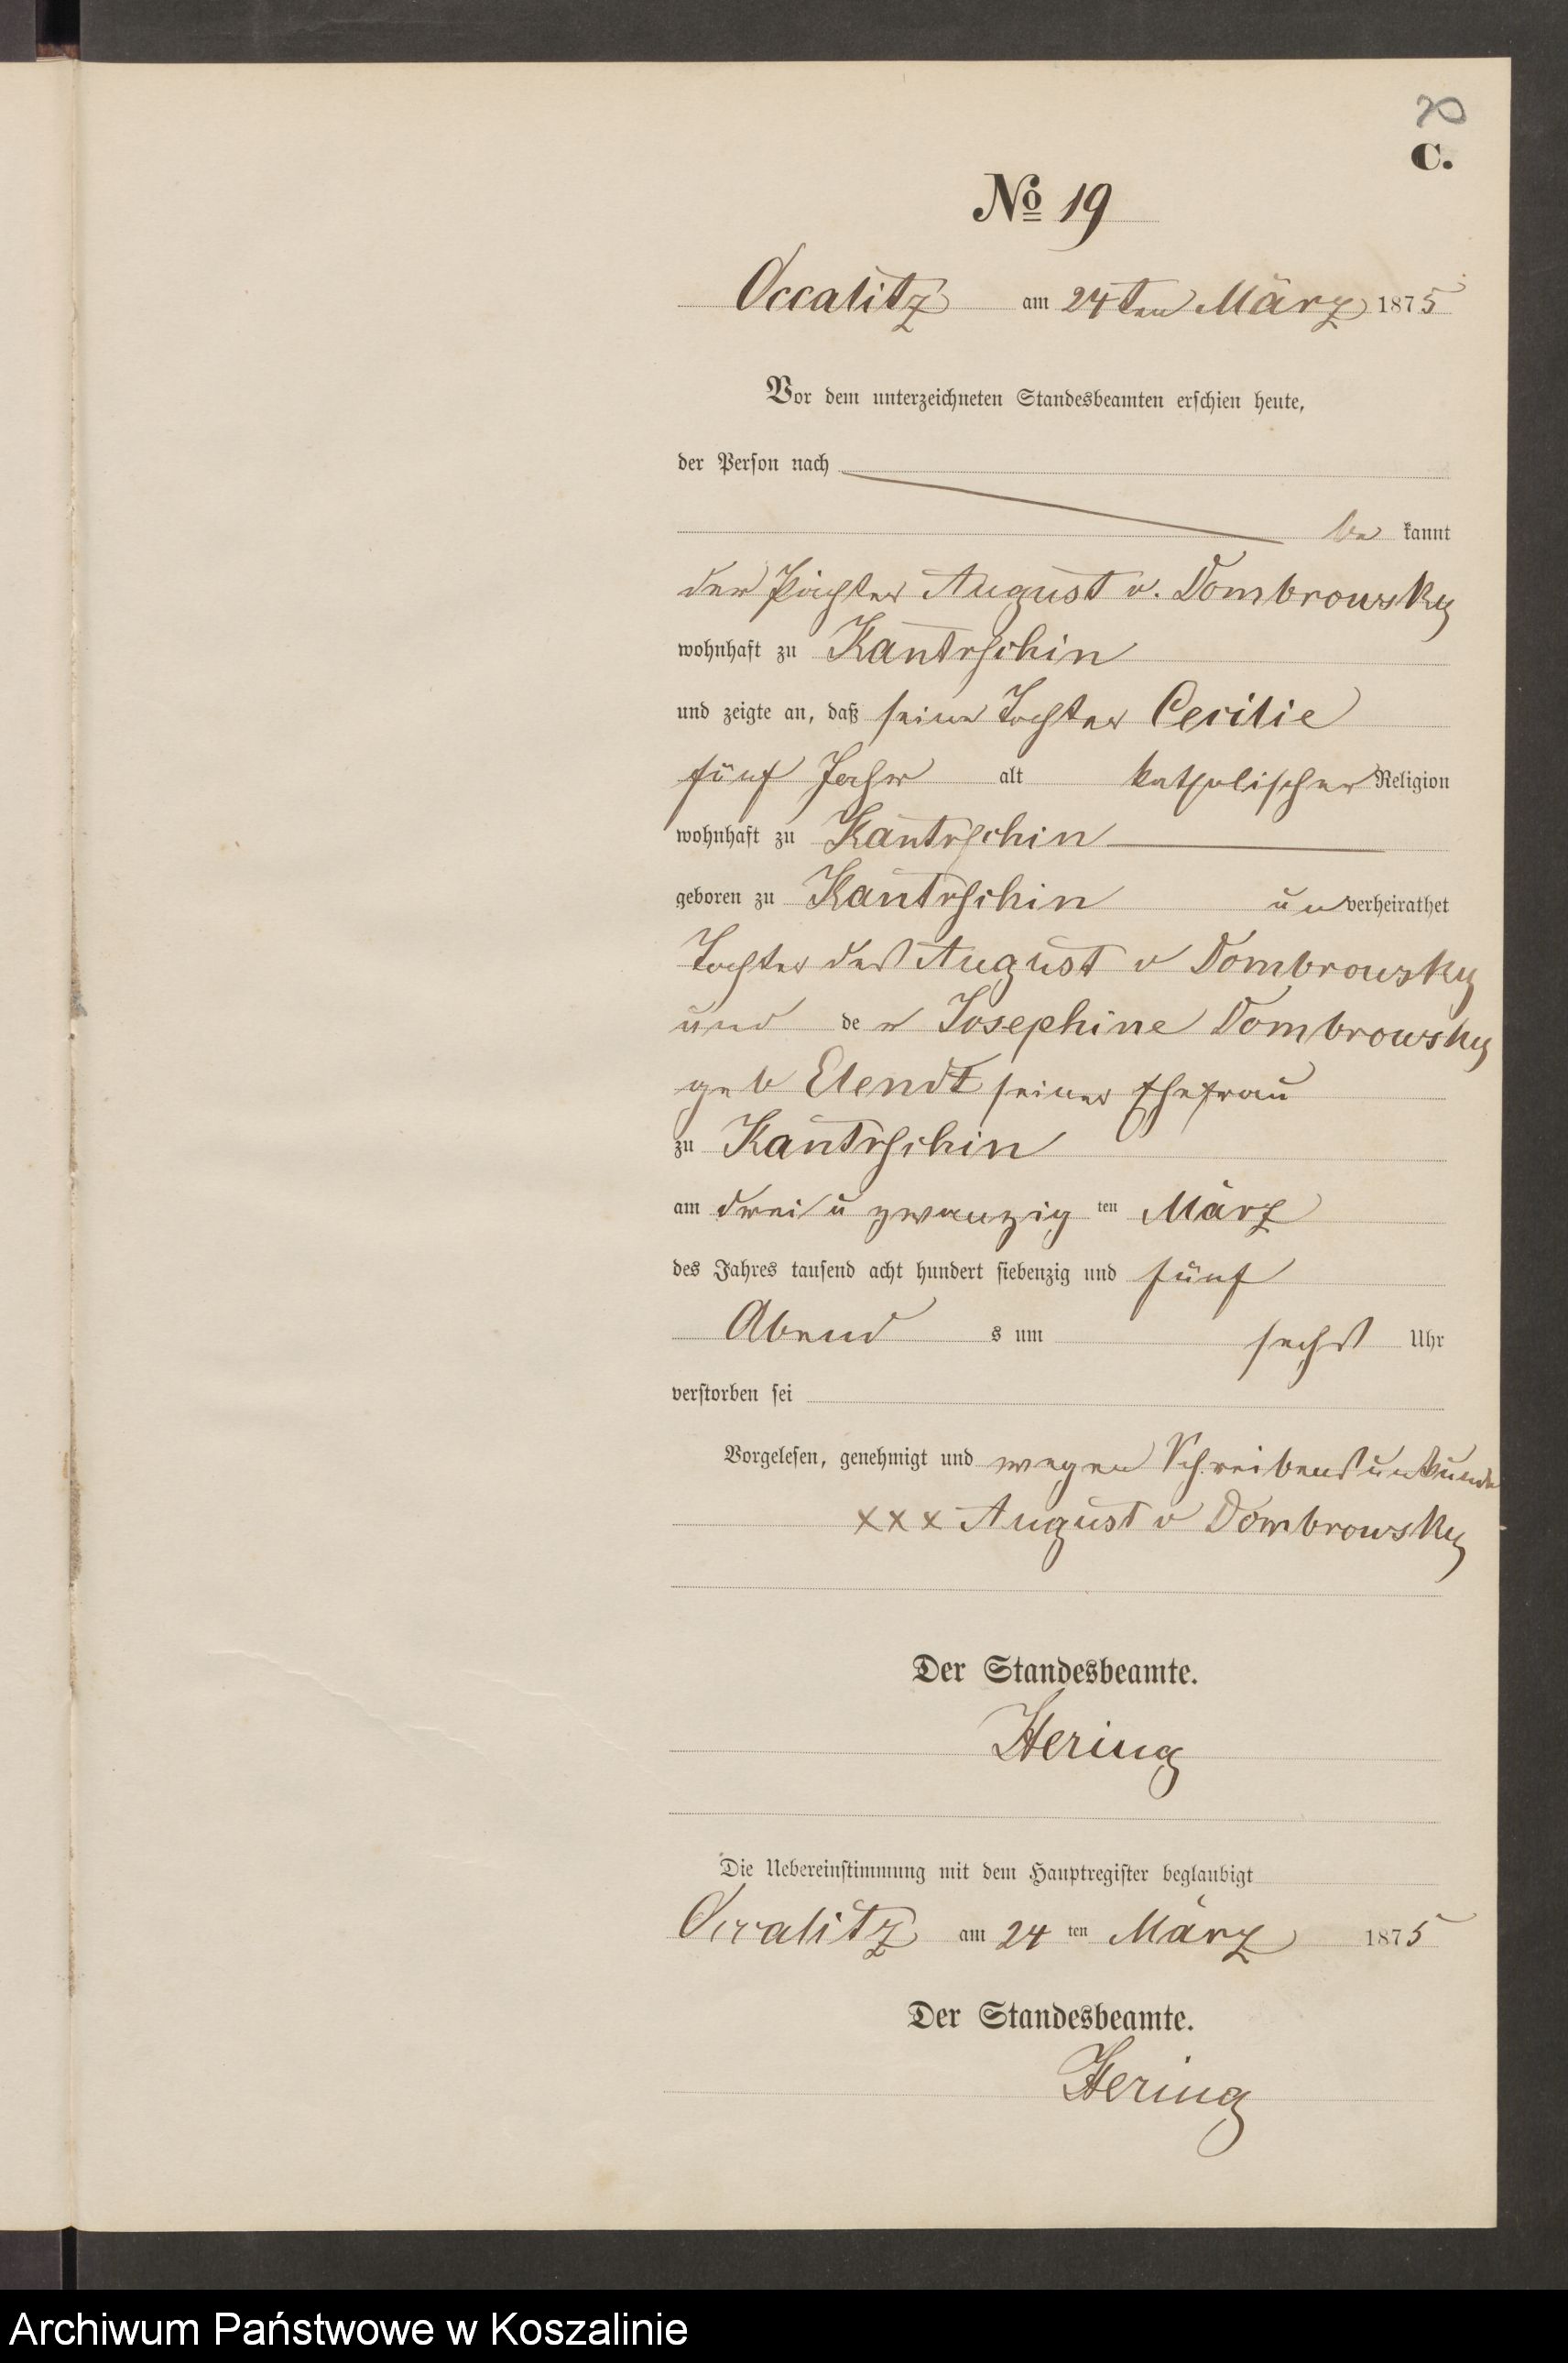 20
C.
No 19
Occalitz am 24ten März 1875
Vor dem unterzeichneten Standesbeamten erschien heute,
der Person nach
be kannt
der Pächter August v. Dombrowsky
wohnhaft zu Kantrschin
und zeigte an, daß seine Tochter Cecilie
fünf Jahr alt katholischer Religion
wohnhaft zu Kantrschin
geboren zu Kantrschin unverheirathet
Tochter des August v Dombrowsky
und der Josephine Dombrowsky
geb Elendt seiner Ehefrau
zu Kantrschin
am drei u zwanzig ten März
des Jahres tausend acht hundert siebenzig und fünf
Abend s um sechs Uhr
verstorben sei
Vorgelesen, genehmigt und wegen Schreibensunkunde
xxx August v Dombrowsky
Der Standesbeamte.
Hering
Die Uebereinstimmung mit dem Hauptregister beglaubigt
Occalitz am 24 ten März 1875
Der Standesbeamte.
Hering
Archiwum Państwowe w Koszalinie